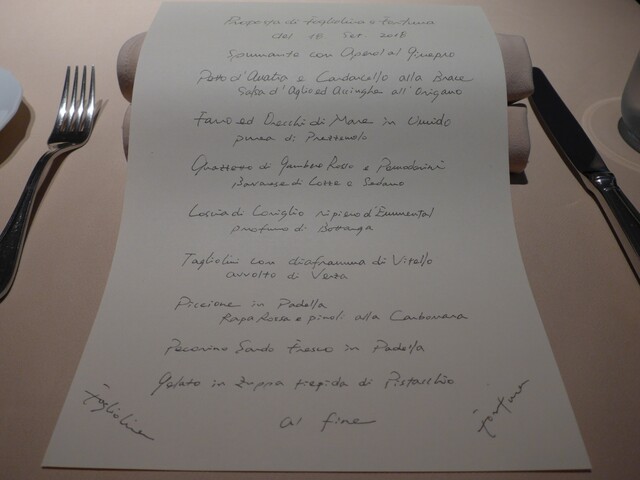 Proposta di Fogliolina e Fortuna
del 18 Set. 2018
Spumante con Aperol al Ginepro
Petto d'Anatra e Cardoncello alla Brace
Salsa d'Aglio ed Acciughe all'Origano
Farro ed Orecchi di Mare in Umido
purea di Prezzemolo
Guazzetto di Gambero Rosso e Pomodorini
Bavarese di Latte e Sedano
Coscia di Coniglio ripieno d'Emmental
profumo di Bottarga
Tagliolini con diaframma di Vitello
avvolto di Verza
Piccione in Padella
Rapa Rossa e pinoli alla Carbonara
Pecorino Sardo Fresco in Padella
Gelato in Zuppa tiepida di Pistacchio
al fine
Fogliolina
Fortuna